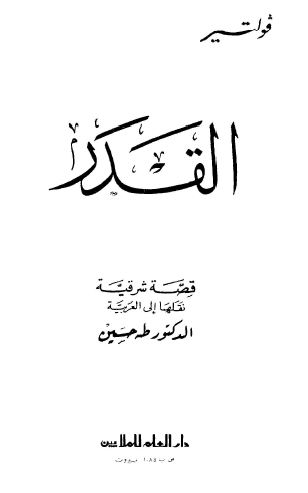 ڤولتير
القَدَر
قصّة شرقيّة
نقلها إلى العربيّة
الدكتور طه حسين
دار العلم للملايين
ص ب ١٠٨٥ بيروت